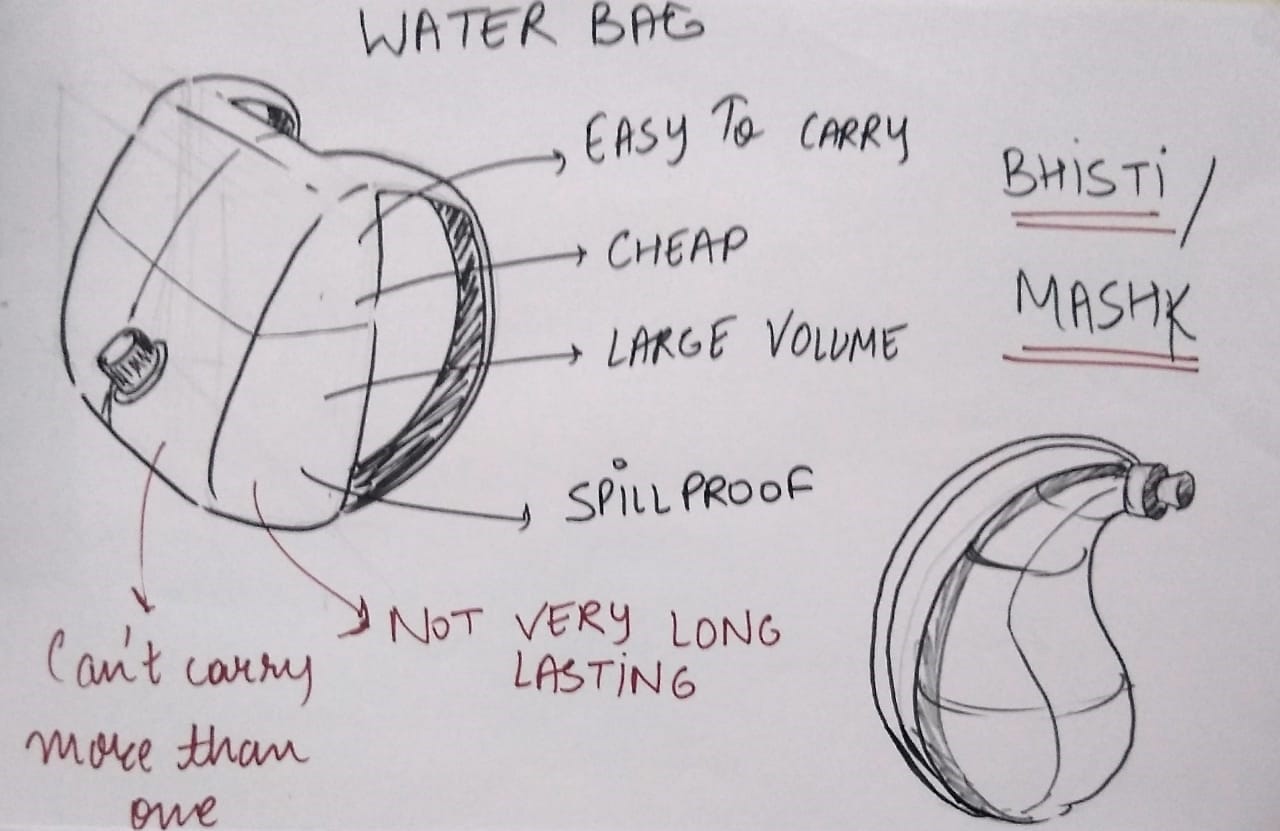 WATER BAG
EASY To CARRY
CHEAP
LARGE VOLUME
SPILLPROOF
NOT VERY LONG
LASTING
Can't carry
more than
one
BHiSTi /
MASHK